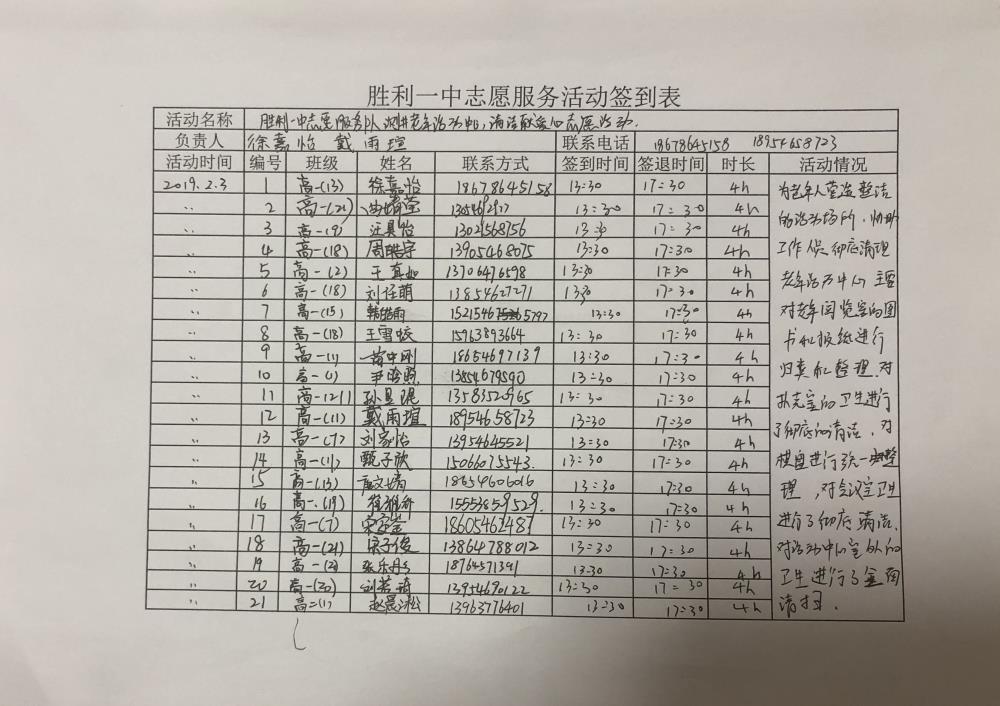 胜利一中志愿服务活动签到表
活动名称 胜利一中志愿服务队 老年活动中心,清洁献爱心志愿活动.
负责人 徐嘉怡 戴雨瑄 联系电话 18678645158 18954658723
活动时间 编号 班级 姓名 联系方式 签到时间 签退时间 时长 活动情况
2019.2.3 1 高一(13) 徐嘉怡 18678645158 13:30 17:30 4h 为老年人营造整洁
〃 2 高一(21) 13:30 17:30 4h 的活动场所,协助
〃 3 高一(9) 汪具怡 13021568756 13:30 17:30 4h
〃 4 高一(18) 周皓宇 13905468075 13:30 17:30 4h 工作人员彻底清理
〃 5 高一(2) 于真如 13706476598 13:30 17:30 4h 老年活动中心,主要
〃 6 高一(18) 刘任萌 13854627271 13:30 17:30 4h
〃 7 高一(15) 13:30 17:30 4h 对老年阅览室的图
〃 8 高一(18) 王雪蛟 15963893664 13:30 17:30 4h 书和报纸进行
〃 9 高一(1) 黄中刚 18654697139 13:30 17:30 4h
〃 10 高一(1) 13854679590 13:30 17:30 4h 归类和整理,对
〃 11 高一(21) 孙昱琨 13583520965 13:30 17:30 4h 扑克室的卫生进行
〃 12 高一(11) 戴雨瑄 18954658723 13:30 17:30 4h
〃 13 高一(7) 刘家怡 13954645521 13:30 17:30 4h 了彻底的清洁,对
〃 14 高一(1) 甄子欣 15066075543. 13:30 17:30 4h 棋盘进行了统一整
〃 15 高一(13) 18654606016 13:30 17:30 4h 理,对会议室卫生
〃 16 高一(19) 15553859529. 13:30 17:30 4h
〃 17 高一(7) 18605462487 13:30 17:30 4h 进行了彻底清洁,
〃 18 高一(21) 宋子俊 13864788012 13:30 17:30 4h 对活动中心室外的
〃 19 高一(2) 张乐丹 18764571391 13:30 17:30 4h
〃 20 高一(20) 刘若琦 13954690122 13:30 17:30 4h 卫生进行了全面
〃 21 高二(1) 赵晨淞 13963776401 13:30 17:30 4h 清扫.